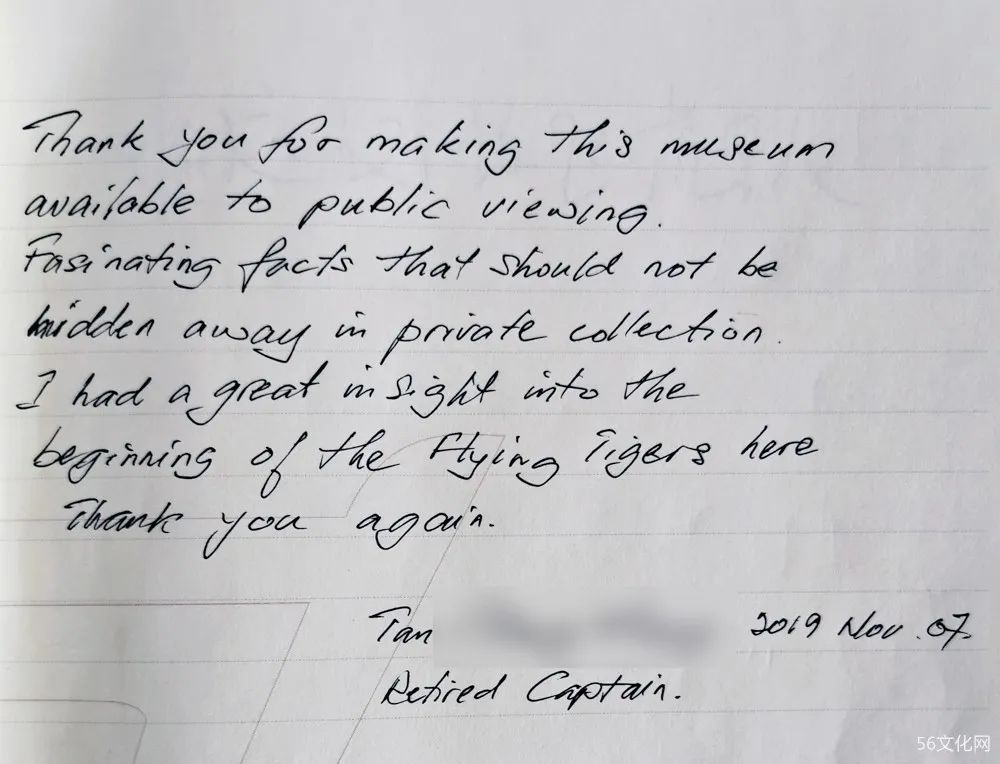 Thank you for making this museum
available to public viewing.
Fasinating facts that should not be
hidden away in private collection.
I had a great insight into the
beginning of the Flying Tigers here
Thank you again.
Tan 2019 Nov. 07.
Retired Captain.
56文化网